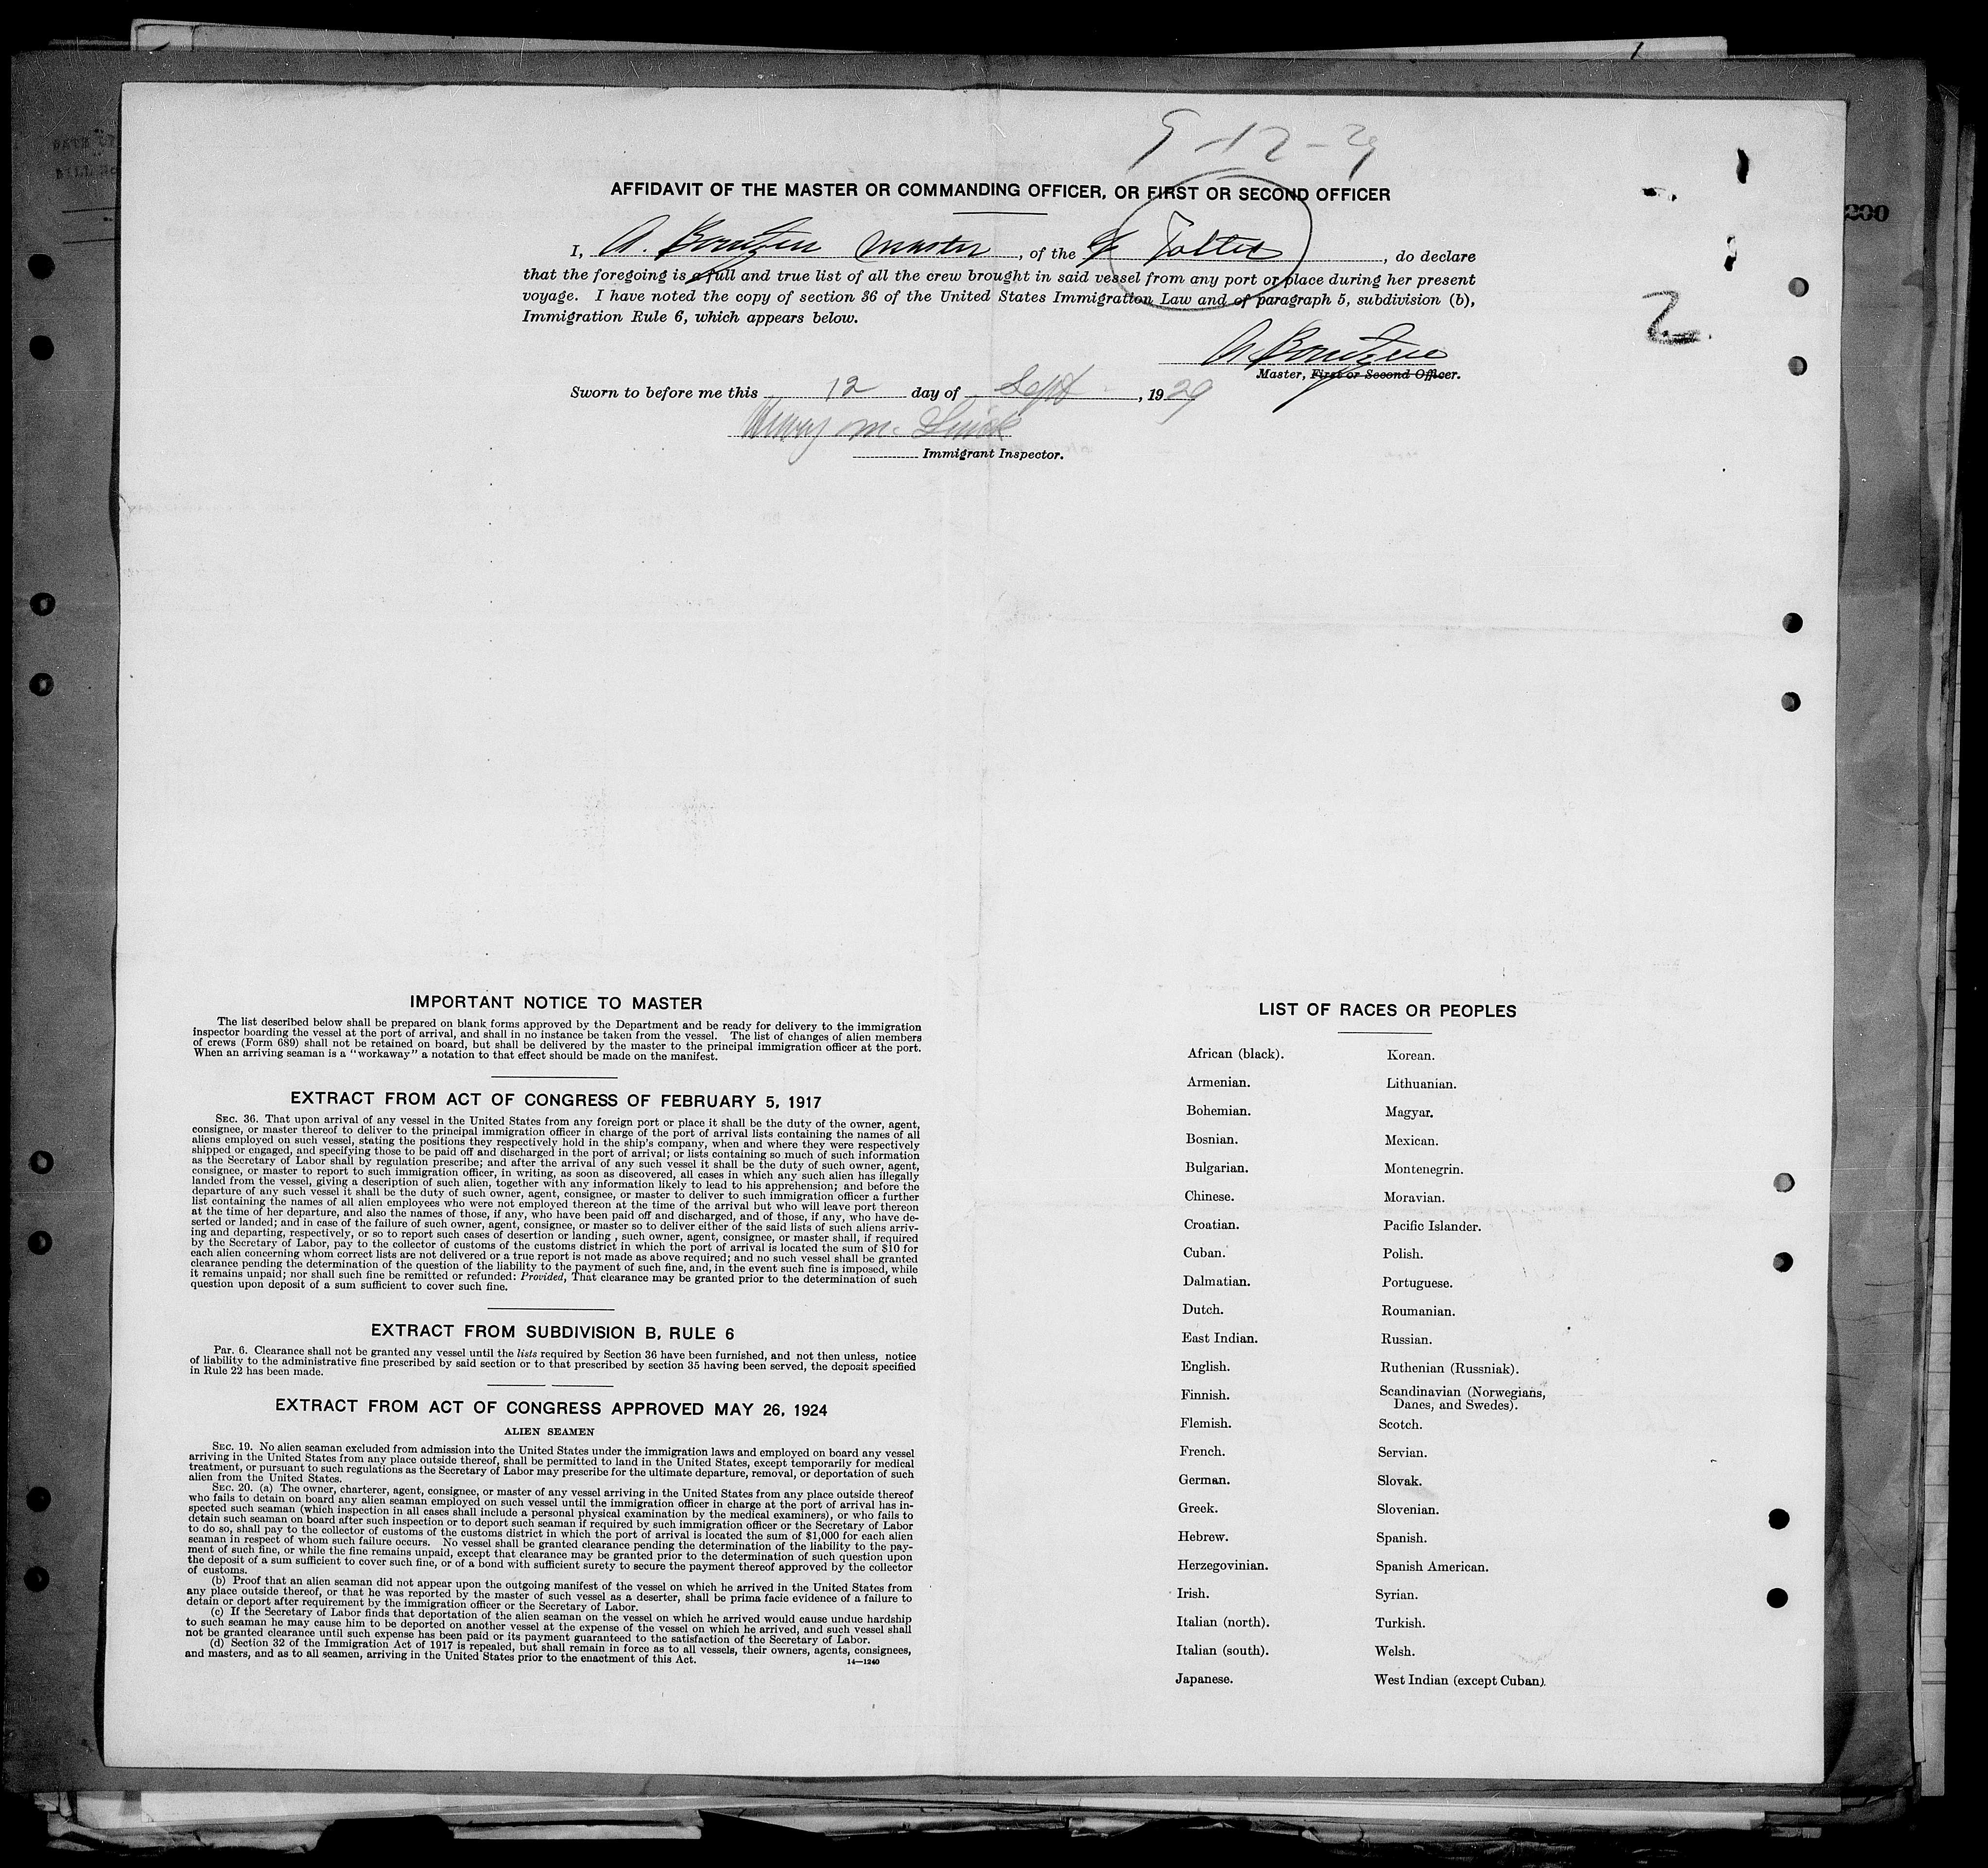 9-12-29
AFFIDAVIT OF THE MASTER OR COMMANDING OFFICER, OR FIRST OR SECOND OFFICER
I, A. master, of the , do declare
that the foregoing is a full and true list of all the crew brought in said vessel from any port or place during her present
voyage. I have noted the copy of section 36 of the United States Immigration Law and of paragraph 5, subdivision (b),
Immigration Rule 6, which appears below.
2
200
Master, First or Second Officer.
Sworn to before me this 12 day of Sept, 1929
Henry M.
Immigrant Inspector.
IMPORTANT NOTICE TO MASTER
The list described below shall be prepared on blank forms approved by the Department and be ready for delivery to the immigration
inspector boarding the vessel at the port of arrival, and shall in no instance be taken from the vessel. The list of changes of alien members
of crews (Form 689) shall not be retained on board, but shall be delivered by the master to the principal immigration officer at the port.
When an arriving seaman is a "workaway" a notation to that effect should be made on the manifest.
EXTRACT FROM ACT OF CONGRESS OF FEBRUARY 5, 1917
SEC. 36. That upon arrival of any vessel in the United States from any foreign port or place it shall be the duty of the owner, agent,
consignee, or master thereof to deliver to the principal immigration officer in charge of the port of arrival lists containing the names of all
aliens employed on such vessel, stating the positions they respectively hold in the ship's company, when and where they were respectively
shipped or engaged, and specifying those to be paid off and discharged in the port of arrival; or lists containing so much of such information
as the Secretary of Labor shall by regulation prescribe; and after the arrival of any such vessel it shall be the duty of such owner, agent,
consignee, or master to report to such immigration officer, in writing, as soon as discovered, all cases in which any such alien has illegally
landed from the vessel, giving a description of such alien, together with any information likely to lead to his apprehension; and before the
departure of any such vessel it shall be the duty of such owner, agent, consignee, or master to deliver to such immigration officer a further
list containing the names of all alien employees who were not employed thereon at the time of the arrival but who will leave port thereon
at the time of her departure, and also the names of those, if any, who have been paid off and discharged, and of those, if any, who have de-
serted or landed; and in case of the failure of such owner, agent, consignee, or master so to deliver either of the said lists of such aliens arriv-
ing and departing, respectively, or so to report such cases of desertion or landing , such owner, agent, consignee, or master shall, if required
by the Secretary of Labor, pay to the collector of customs of the customs district in which the port of arrival is located the sum of $10 for
each alien concerning whom correct lists are not delivered or a true report is not made as above required; and no such vessel shall be granted
clearance pending the determination of the question of the liability to the payment of such fine, and, in the event such fine is imposed, while
it remains unpaid; nor shall such fine be remitted or refunded: Provided, That clearance may be granted prior to the determination of such
question upon deposit of a sum sufficient to cover such fine.
EXTRACT FROM SUBDIVISION B, RULE 6
Par. 6. Clearance shall not be granted any vessel until the lists required by Section 36 have been furnished, and not then unless, notice
of liability to the administrative fine prescribed by said section or to that prescribed by section 35 having been served, the deposit specified
in Rule 22 has been made.
EXTRACT FROM ACT OF CONGRESS APPROVED MAY 26, 1924
ALIEN SEAMEN
SEC. 19. No alien seaman excluded from admission into the United States under the immigration laws and employed on board any vessel
arriving in the United States from any place outside thereof, shall be permitted to land in the United States, except temporarily for medical
treatment, or pursuant to such regulations as the Secretary of Labor may prescribe for the ultimate departure, removal, or deportation of such
alien from the United States.
SEC. 20. (a) The owner, charterer, agent, consignee, or master of any vessel arriving in the United States from any place outside thereof
who fails to detain on board any alien seaman employed on such vessel until the immigration officer in charge at the port of arrival has in-
spected such seaman (which inspection in all cases shall include a personal physical examination by the medical examiners), or who fails to
detain such seaman on board after such inspection or to deport such seaman if required by such immigration officer or the Secretary of Labor
to do so, shall pay to the collector of customs of the customs district in which the port of arrival is located the sum of $1,000 for each alien
seaman in respect of whom such failure occurs. No vessel shall be granted clearance pending the determination of the liability to the pay-
ment of such fine, or while the fine remains unpaid, except that clearance may be granted prior to the determination of such question upon
the deposit of a sum sufficient to cover such fine, or of a bond with sufficient surety to secure the payment thereof approved by the collector
of customs.
(b) Proof that an alien seaman did not appear upon the outgoing manifest of the vessel on which he arrived in the United States from
any place outside thereof, or that he was reported by the master of such vessel as a deserter, shall be prima facie evidence of a failure to
detain or deport after requirement by the immigration officer or the Secretary of Labor.
(c) If the Secretary of Labor finds that deportation of the alien seaman on the vessel on which he arrived would cause undue hardship
to such seaman he may cause him to be deported on another vessel at the expense of the vessel on which he arrived, and such vessel shall
not be granted clearance until such expense has been paid or its payment guaranteed to the satisfaction of the Secretary of Labor.
(d) Section 32 of the Immigration Act of 1917 is repealed, but shall remain in force as to all vessels, their owners, agents, consignees,
and masters, and as to all seamen, arriving in the United States prior to the enactment of this Act.
14—1240
LIST OF RACES OR PEOPLES
African (black). Korean.
Armenian. Lithuanian.
Bohemian. Magyar.
Bosnian. Mexican.
Bulgarian. Montenegrin.
Chinese. Moravian.
Croatian. Pacific Islander.
Cuban. Polish.
Dalmatian. Portuguese.
Dutch. Roumanian.
East Indian. Russian.
English. Ruthenian (Russniak).
Finnish. Scandinavian (Norwegians,
Danes, and Swedes).
Flemish. Scotch.
French. Servian.
German. Slovak.
Greek. Slovenian.
Hebrew. Spanish.
Herzegovinian. Spanish American.
Irish. Syrian.
Italian (north). Turkish.
Italian (south). Welsh.
Japanese. West Indian (except Cuban).